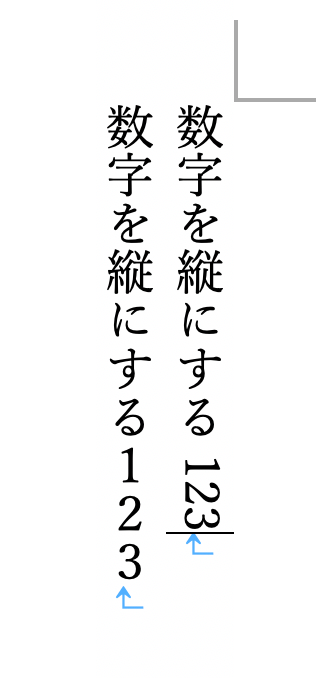 数字を縦にする 123
数字を縦にする１２３